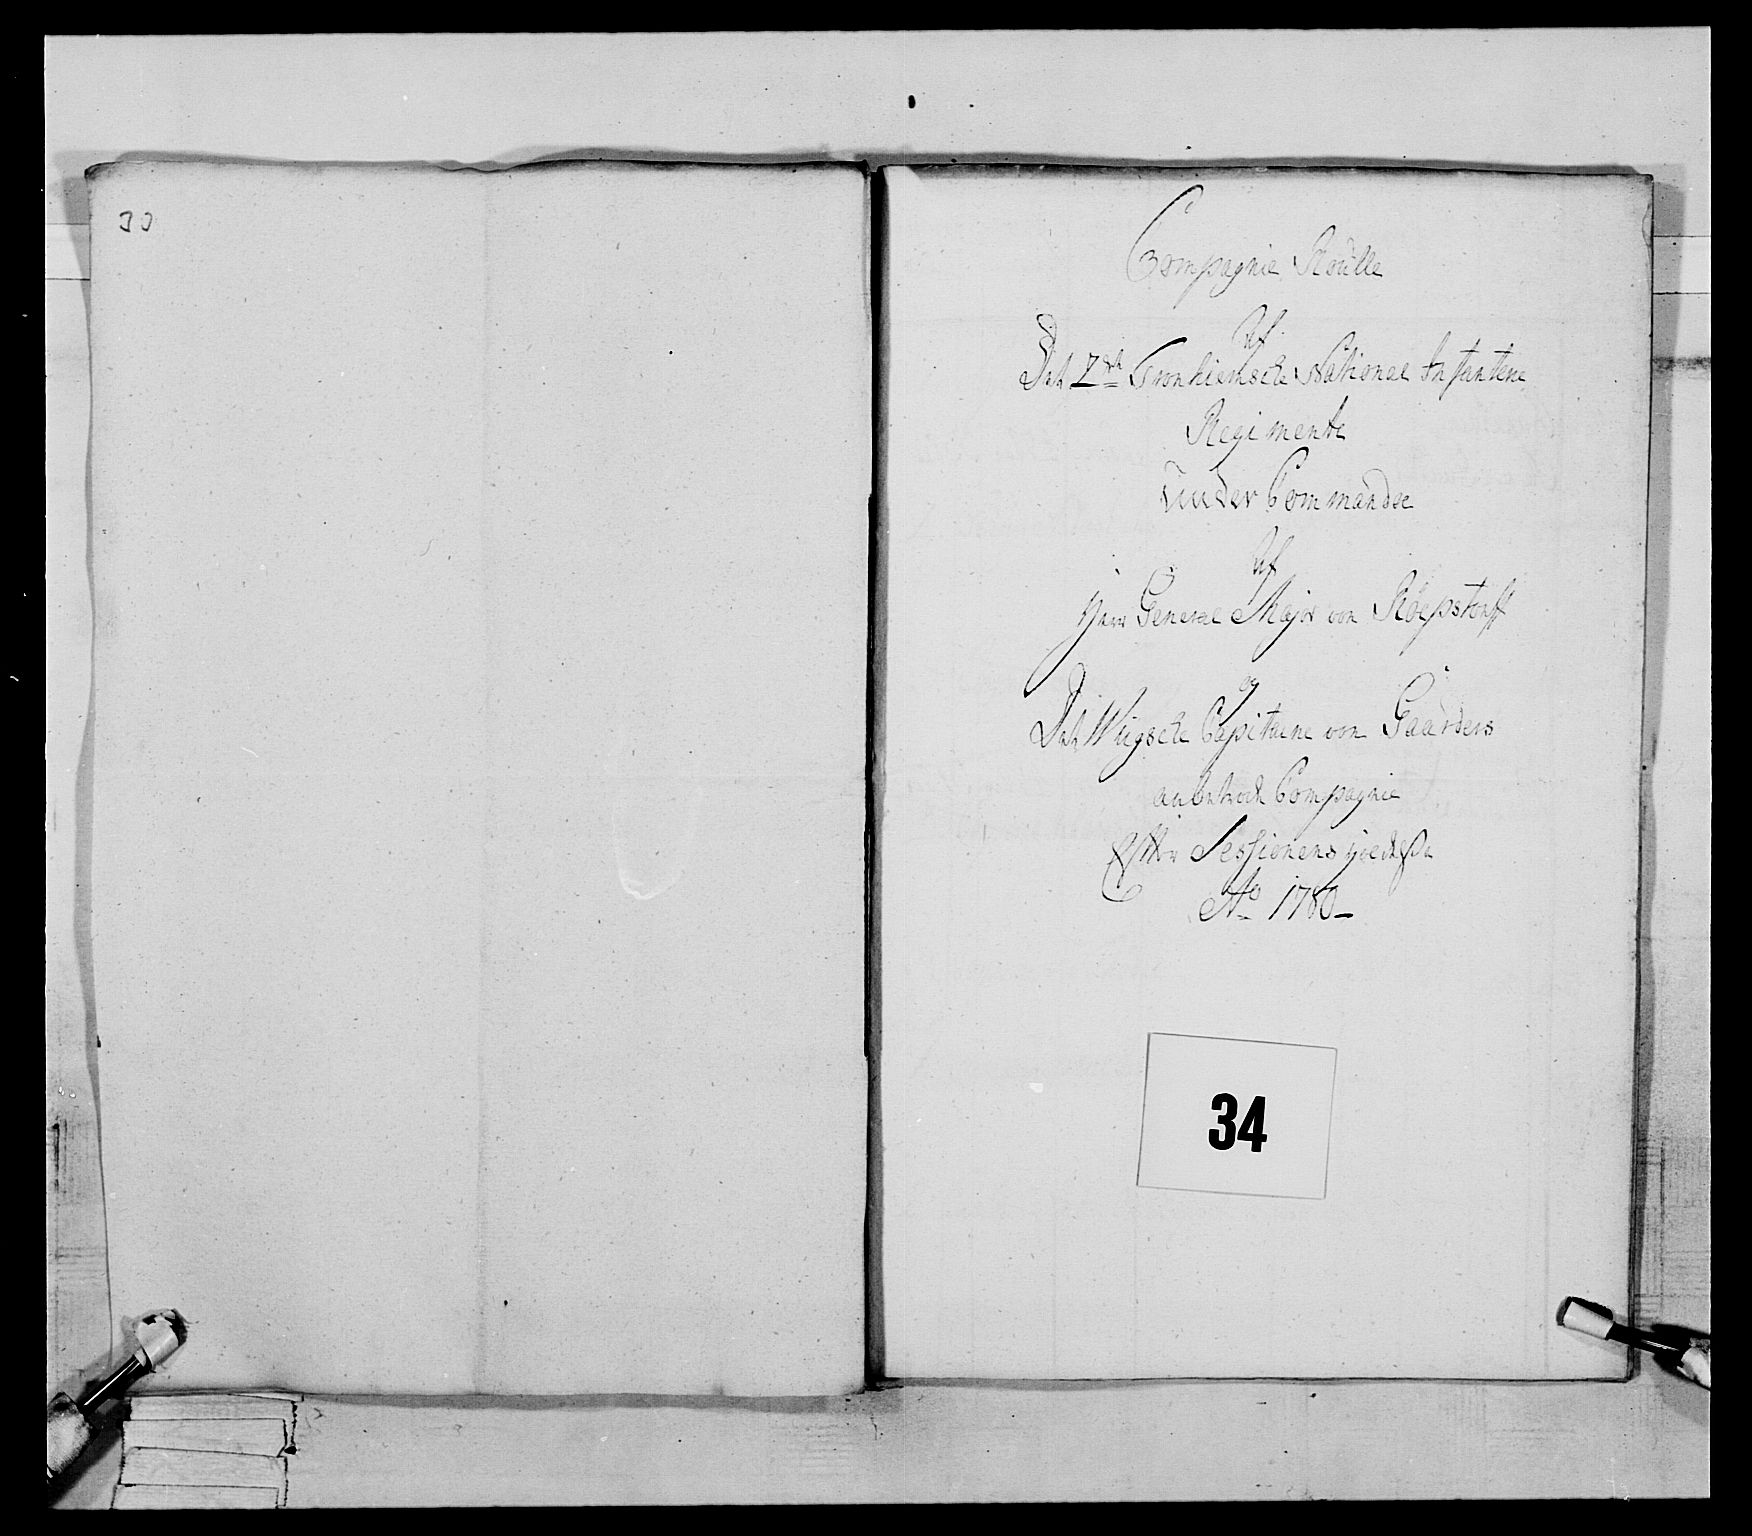 Compagnie Roulle
Af
Det 2det Tronhiemske National Infanterie
Regimente
under Commandoe
Af
Herr General Major von Röepstorff
og
Det Wiigske Capitaine von Gaarders
anbetroede Compagnie
Efter Sessionens
Ao 1780
34